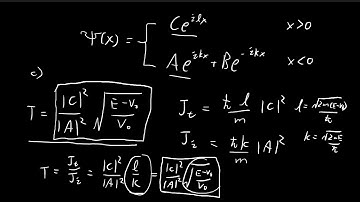 Ψ(x) = { Ce^{ilx} x>0
Ae^{ikx} + Be^{-ikx} x<0
c)
T = |C|²/|A|² √((E-V₀)/V₀)
J_t = ħl/m |C|² l = √(2m(E-V₀))/ħ
J_i = ħk/m |A|² k = √(2mE)/ħ
T = J_t/J_i = |C|²/|A|² (l/k) = |C|²/|A|² √((E-V₀)/V₀)